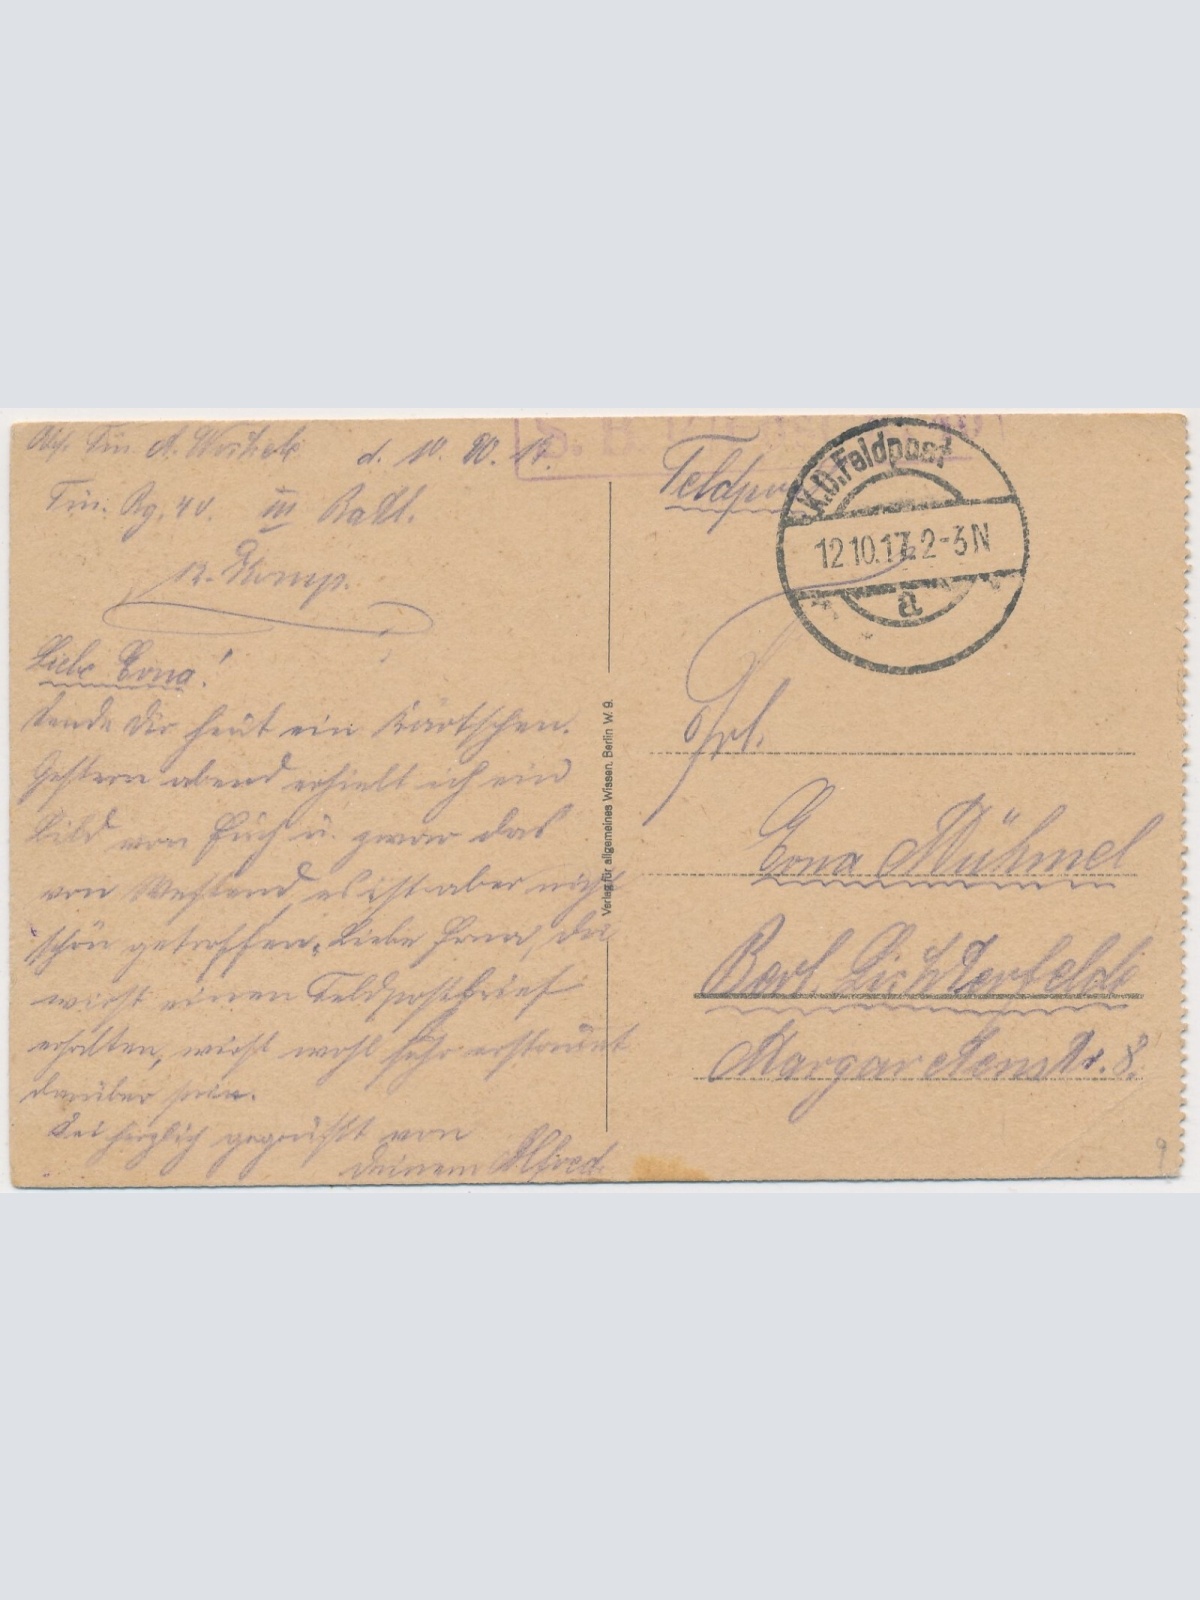 Abs. Füs. A. d. 10. 10. 17.
Füs. Rg. 40. III Batl.
12. Komp.
Liebe Erna!
Sende Dir heut ein Kärtschen.
Gestern abend erhielt ich ein
Bild von Euch u. zwar das
von Westend, es ist aber nicht
schön getroffen. Liebe Erna, Du
wirst einen Feldpostbrief
erhalten, wirst wohl sehr erstaunt
darüber sein.
Sei herzlich gegrüßt von
deinem Alfred.
Verlag für allgemeines Wissen, Berlin W. 9.
S. B.
Feldpost
K.D. Feldpost
12.10.17. 2-3N
a
Frl.
Erna Mühmel
Berl. Lichterfelde
Margaretenstr. 8.
9